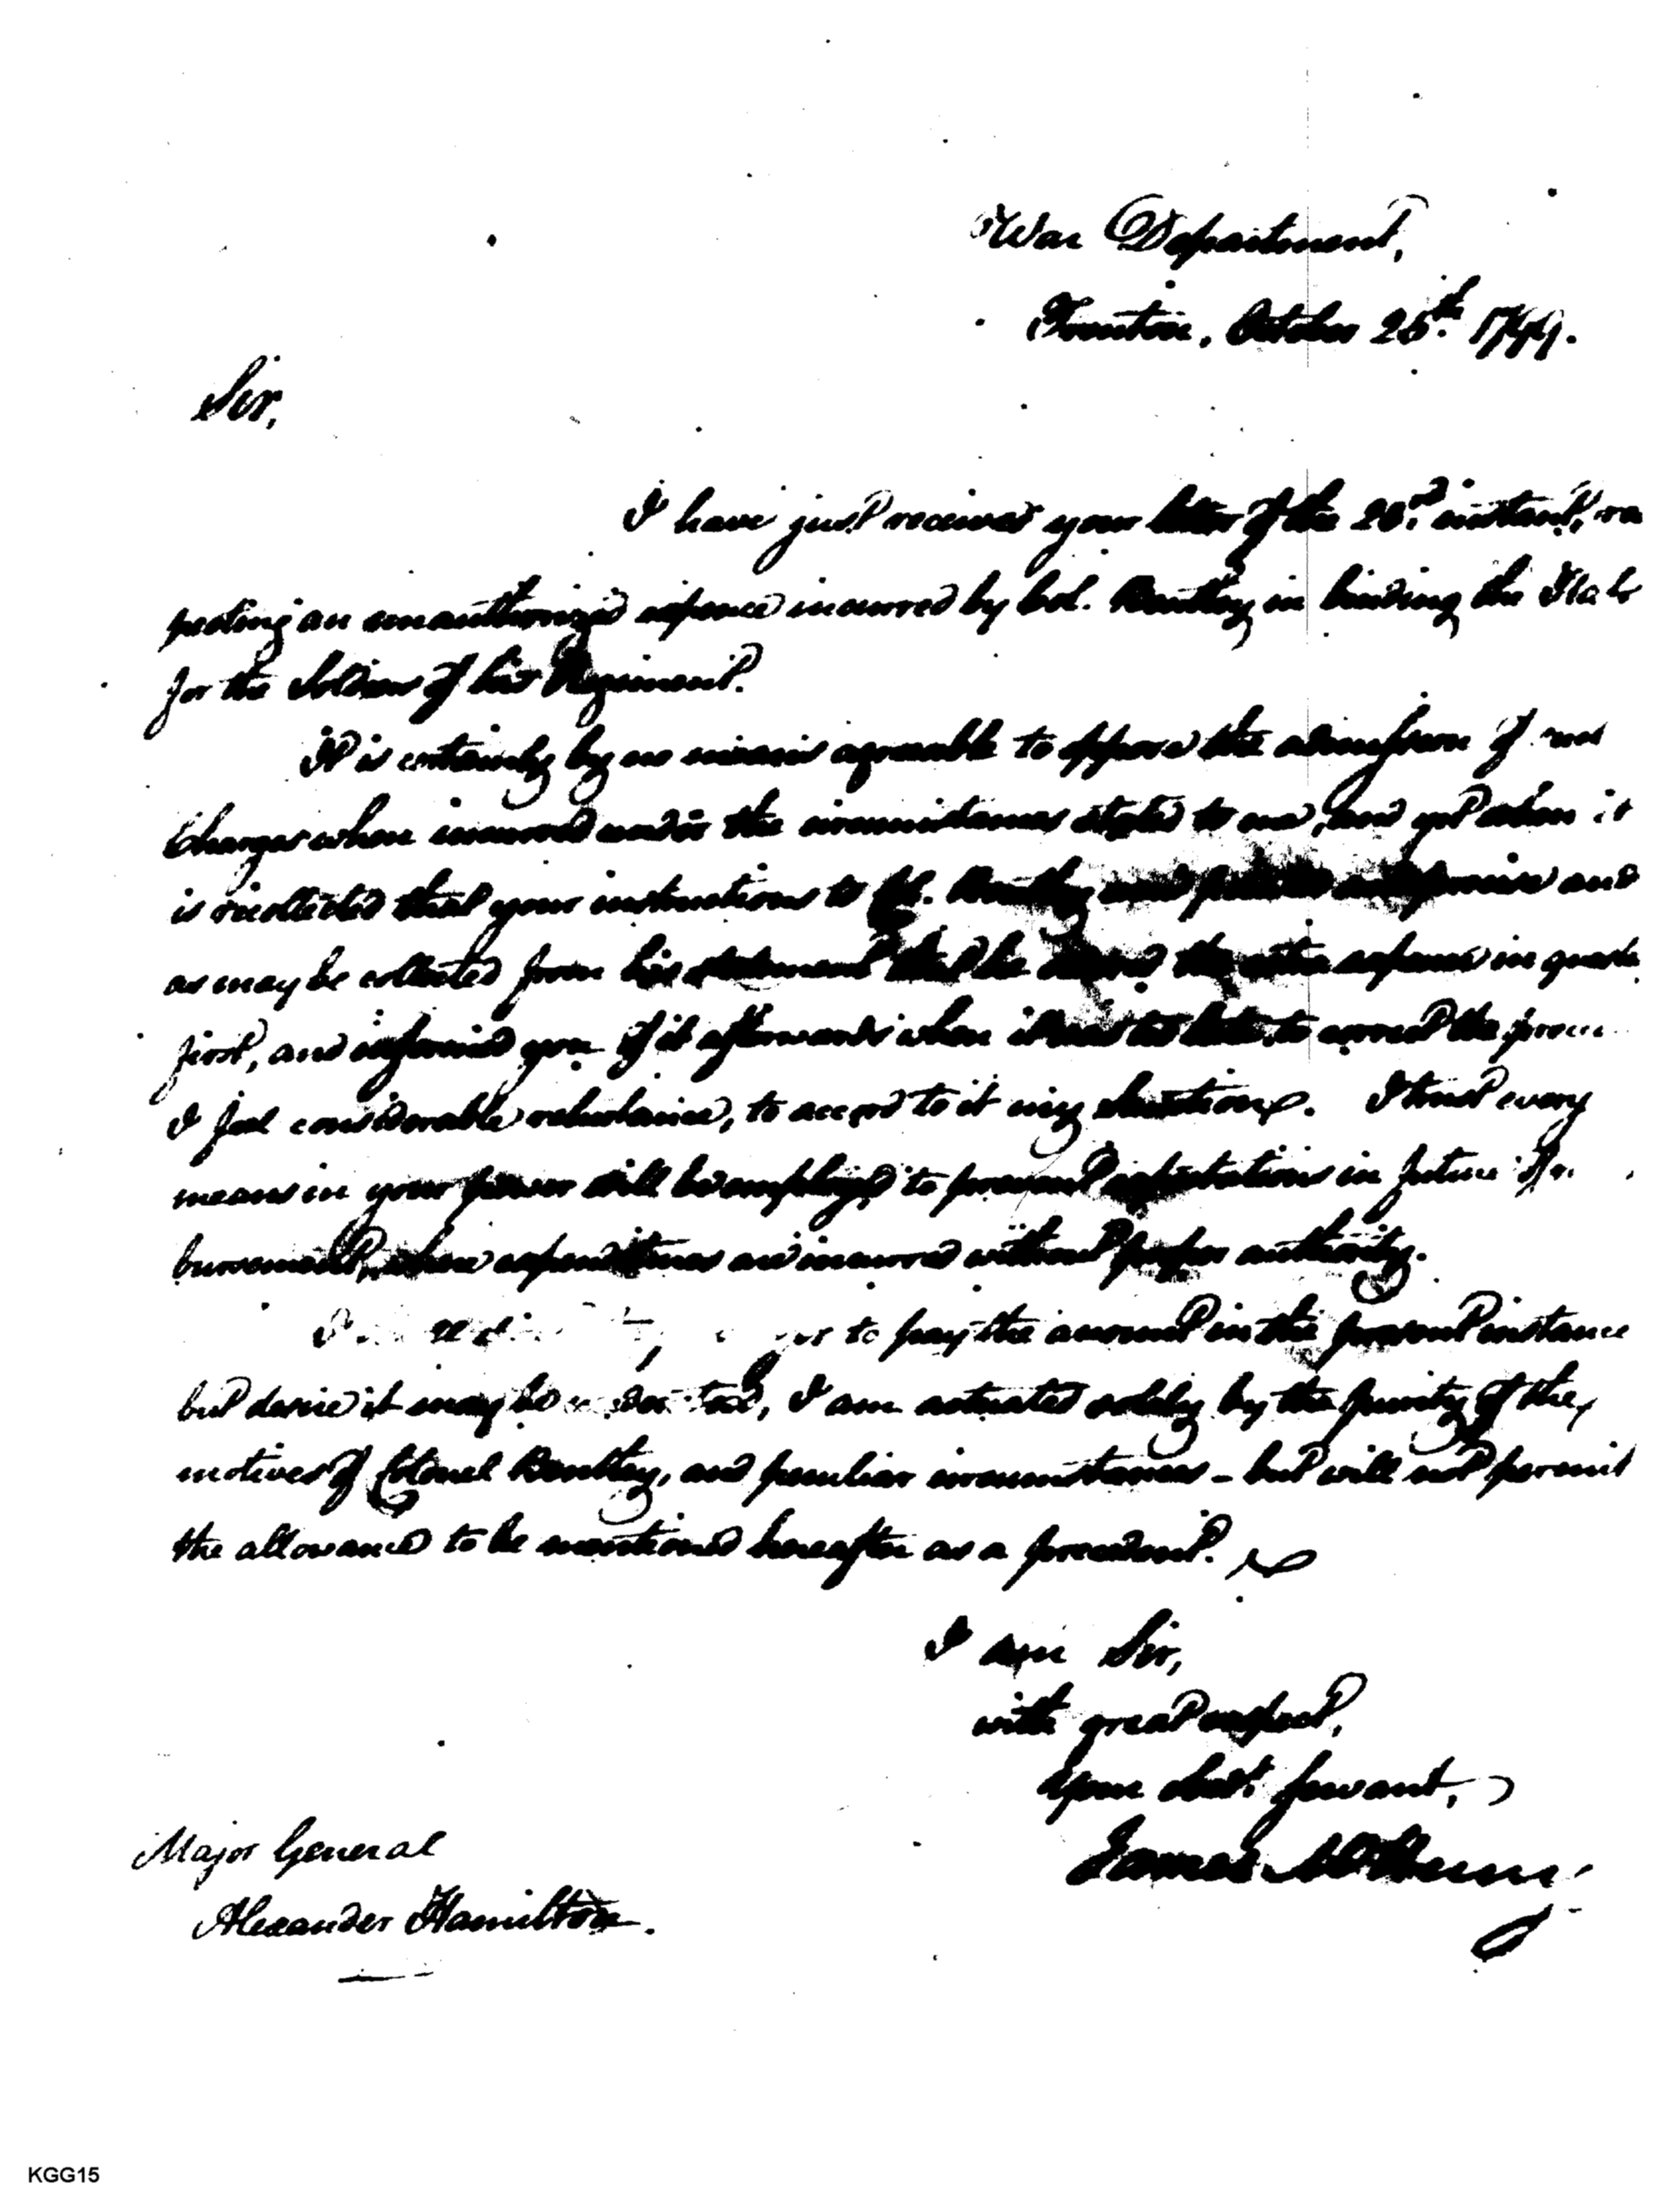 War Department,
Trenton, October 25th. 1799.
Sir,
I have just received your letter of the 23d. instant, res
pecting an unauthorized expence incurred by Col. Bentley in binding the Hats
for the Soldiers of his Regiment.
It is certainly by no means agreeable to oppose the admission of
Charges where incurred under the circumstances stated to me, and yet when it
is recollected that your instructions to Col. Bentley were and
as may be collected from his statement that he the expense in
first, and informed you of it afterwards when it was too late to correct the
I feel considerable reluctance, to accord to it my Sanction. I trust every
means in your power will be employed to prevent in future
bursement, where expenditures are incurred without proper authority.
I to pay the amount in the present instance
but desire it may be understood, I am actuated solely by the purity of the
motives of Colonel Bentley, and peculiar circumstances – but will not permit
the allowance to be mentioned hereafter as a precedent.
I am Sir,
with great respect,
Your obdt. servant,
James McHenry
Major General
Alexander Hamilton.
KGG15